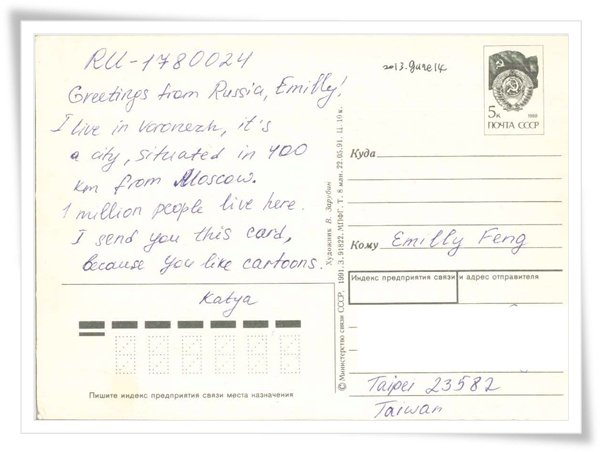 RU-1780024
Greetings from Russia, Emilly!
I live in Voronezh, it's
a city, situated in 400
km from Moscow.
1 million people live here.
I send you this card,
because you like cartoons.
Katya
Пишите индекс предприятия связи места назначения
© Министерство связи СССР. 1991. З. 91822. МПФГ. Т. 8 млн. 22.05.91. Ц. 10 к.
Художник В. Зарубин
2013.June 14
5к
1988
ПОЧТА СССР
Куда
Кому Emilly Feng
Индекс предприятия связи и адрес отправителя
Taipei 23582
Taiwan